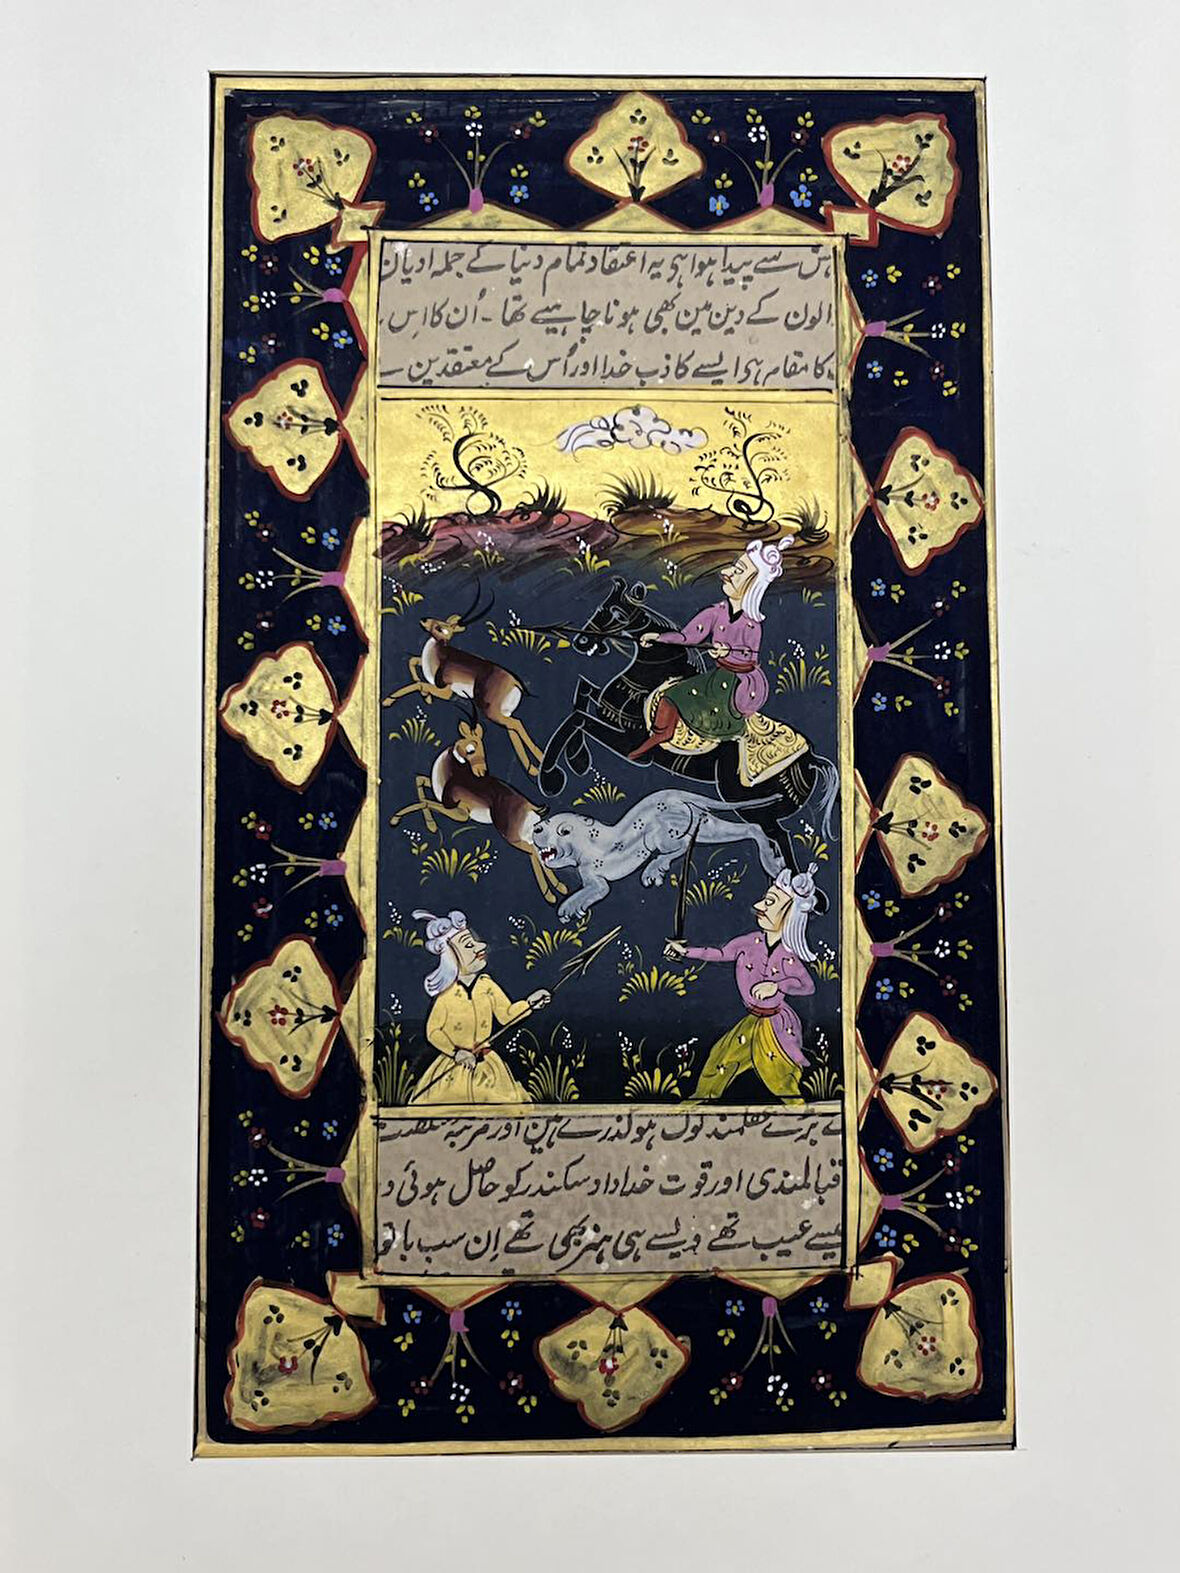 ہش سے پیدا ہوا ہو یہ اعتقاد تمام دنیا کے جملہ ادیان
الون کے دین مین بھی ہونا چاہیے تھا - اُن کا اس
کا مقام ہو ایسے کاذب خدا اور اُس کے معتقدین
بڑے عقلمند لوگ ہو گذرے ہین اور مرتبہ
قبالمندی اور قوت خداداد سکندر کو حاصل ہوئی
جیسے عیب تھے ویسے ہی ہنر بھی تھے اِن سب باتو